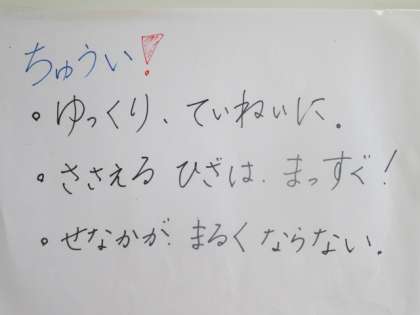 ちゅうい!
・ゆっくり、ていねいに。
・ささえる ひざは、まっすぐ!
・せなかが、まるく ならない。